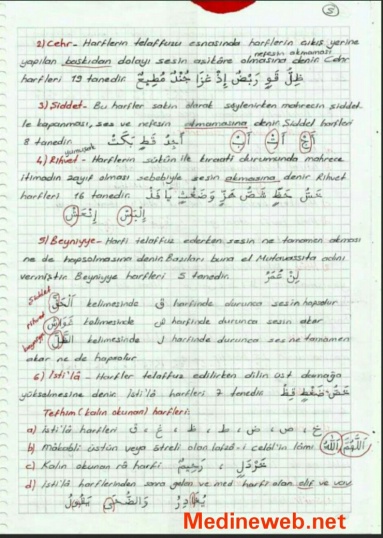 5
2) Cehr - Harflerin telaffuzu esnasında harflerin çıkış yerine
nefesin akmaması
yapılan baskıdan dolayı sesin aşikâre olmasına denir. Cehr
harfleri 19 tanedir. ظِلُّ قَوٍ رَبَضٌ إِذْ غَزَا جُنْدٌ مُطِيعٌ
3) Şiddet - Bu harfler sakin olarak söylenirken mahrecin şiddet
ile kapanması, ses ve nefesin akmamasına denir. Şiddet harfleri
8 tanedir. أَجِدُ قَطٍ بَكَتْ أَبْ
yumuşak
4) Rihvet - Harflerin sükûn ile kıraati durumunda mahrece
itimadın zayıf olması sebebiyle sesin akmasına denir Rihvet
harfleri 16 tanedir.
5) Beyniyye - Harfi telaffuz ederken sesin ne tamamen akması
ne de hapsolmasına denir. Bazıları buna el Mutavassıta adını
vermiştir. Beyniyye harfleri 5 tanedir. لِنْ عُمَرُ
Şiddet اَلْحَقُّ kelimesinde ق harfinde durunca ses in hapsolur
Rihvet kelimesinde harfinde durunca sesin akar
beyniyye اَلظِّلُّ kelimesinde ل harfinde durunca ses ne tamamen
akar ne de hapsolur
6) İsti'lâ - Harfler telaffuz edilirken dilin üst damağa
yükselmesine denir. İsti'lâ harfleri 7 tanedir خُصَّ ضَغْطٍ قِظْ
Tefhim (kalın okunan) harfleri:
a) İsti'lâ harfleri خ ، ص ، ض ، ط ، ظ ، غ ، ق
b) Mâkabli üstün veya ötreli olan lafza-i celâl'in lâmı اَللّٰهُ اَللّٰهُمَّ
c) Kalın okunan râ harfi خَرْدَلٍ ، رَحِيمٌ
d) İsti'lâ harflerinden sonra gelen ve med harfi olan elif ve vav
يُغَادِرُ وَالضُّحَى يَقُولُ
Medineweb.net